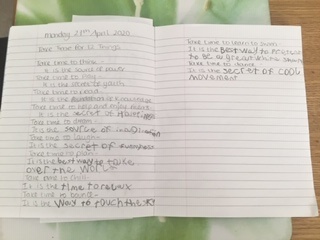 monday 27th April 2020
Take Time for 12 Things
Take time to think-
It is the source of power
Take time to play-
It is the secret to youth
Take time to read-
It is the of knowledge
Take time to help and enjoy nature-
It is the secret of
Take time to dream-
It is the source of
Take time to laugh-
It is the secret of
Take time to plan-
It is the best way to take
over the world
Take time to chill-
It is the time to relax
Take time to bounce-
It is the way to touch the sky
Take time to learn to swim
It is the best way to
to be a great white
Take time to dance-
It is the secret of cool
movement